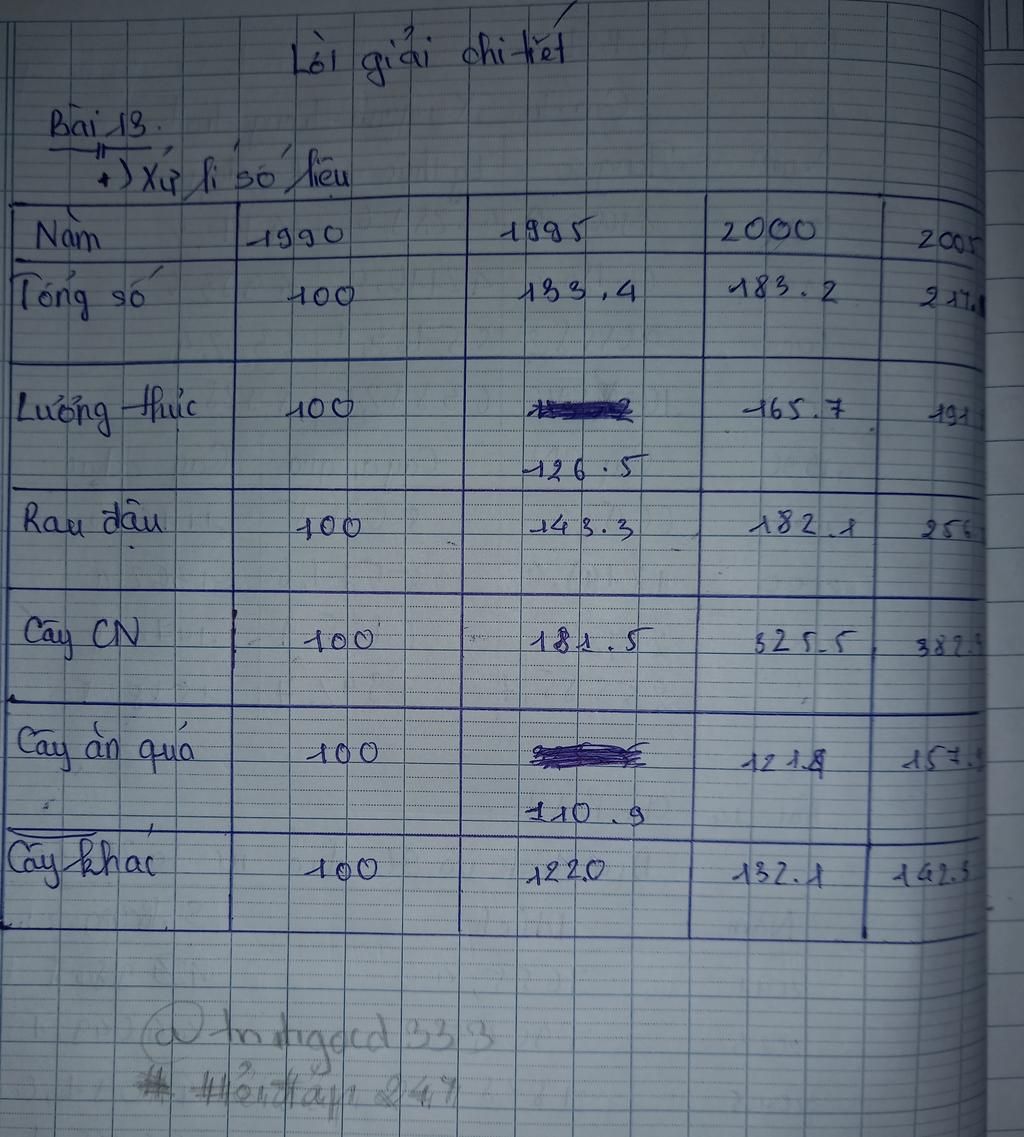 Lời giải chi tiết
Bài 13.
+) Xử lí số liệu
Năm 1990 1995 2000 2005
Tổng số 100 133.4 183.2 217.
Lương thực 100 165.7 191
126.5
Rau đậu 100 143.3 182.1 256
Cây CN 100 181.5 325.5 382.
Cây ăn quả 100 121.8 157.
110.9
Cây khác 100 122.0 132.1 142.3